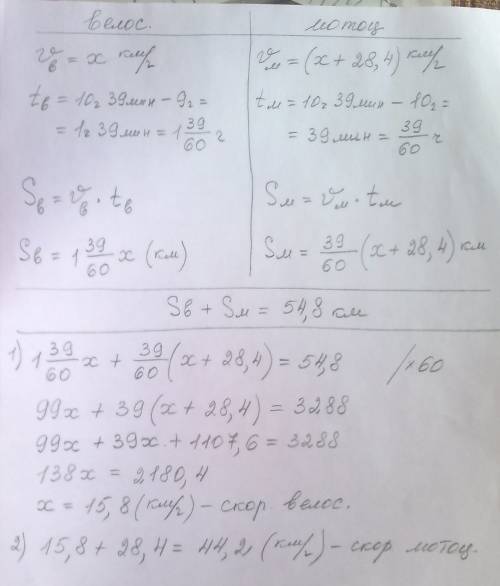 велос. мотоц
vв = x км/г vм = (x + 28,4) км/г
tв = 10г 39мин – 9г = tм = 10г 39мин – 10г =
= 1г 39мин = 1 39/60 г = 39мин = 39/60 ч
Sв = vв · tв Sм = vм · tм
Sв = 1 39/60 x (км) Sм = 39/60 (x + 28,4) км
Sв + Sм = 54,8 км
1) 1 39/60 x + 39/60 (x + 28,4) = 54,8 /×60
99x + 39(x + 28,4) = 3288
99x + 39x + 1107,6 = 3288
138x = 2180,4
x = 15,8 (км/г) – скор велос.
2) 15,8 + 28,4 = 44,2 (км/г) – скор мотоц.